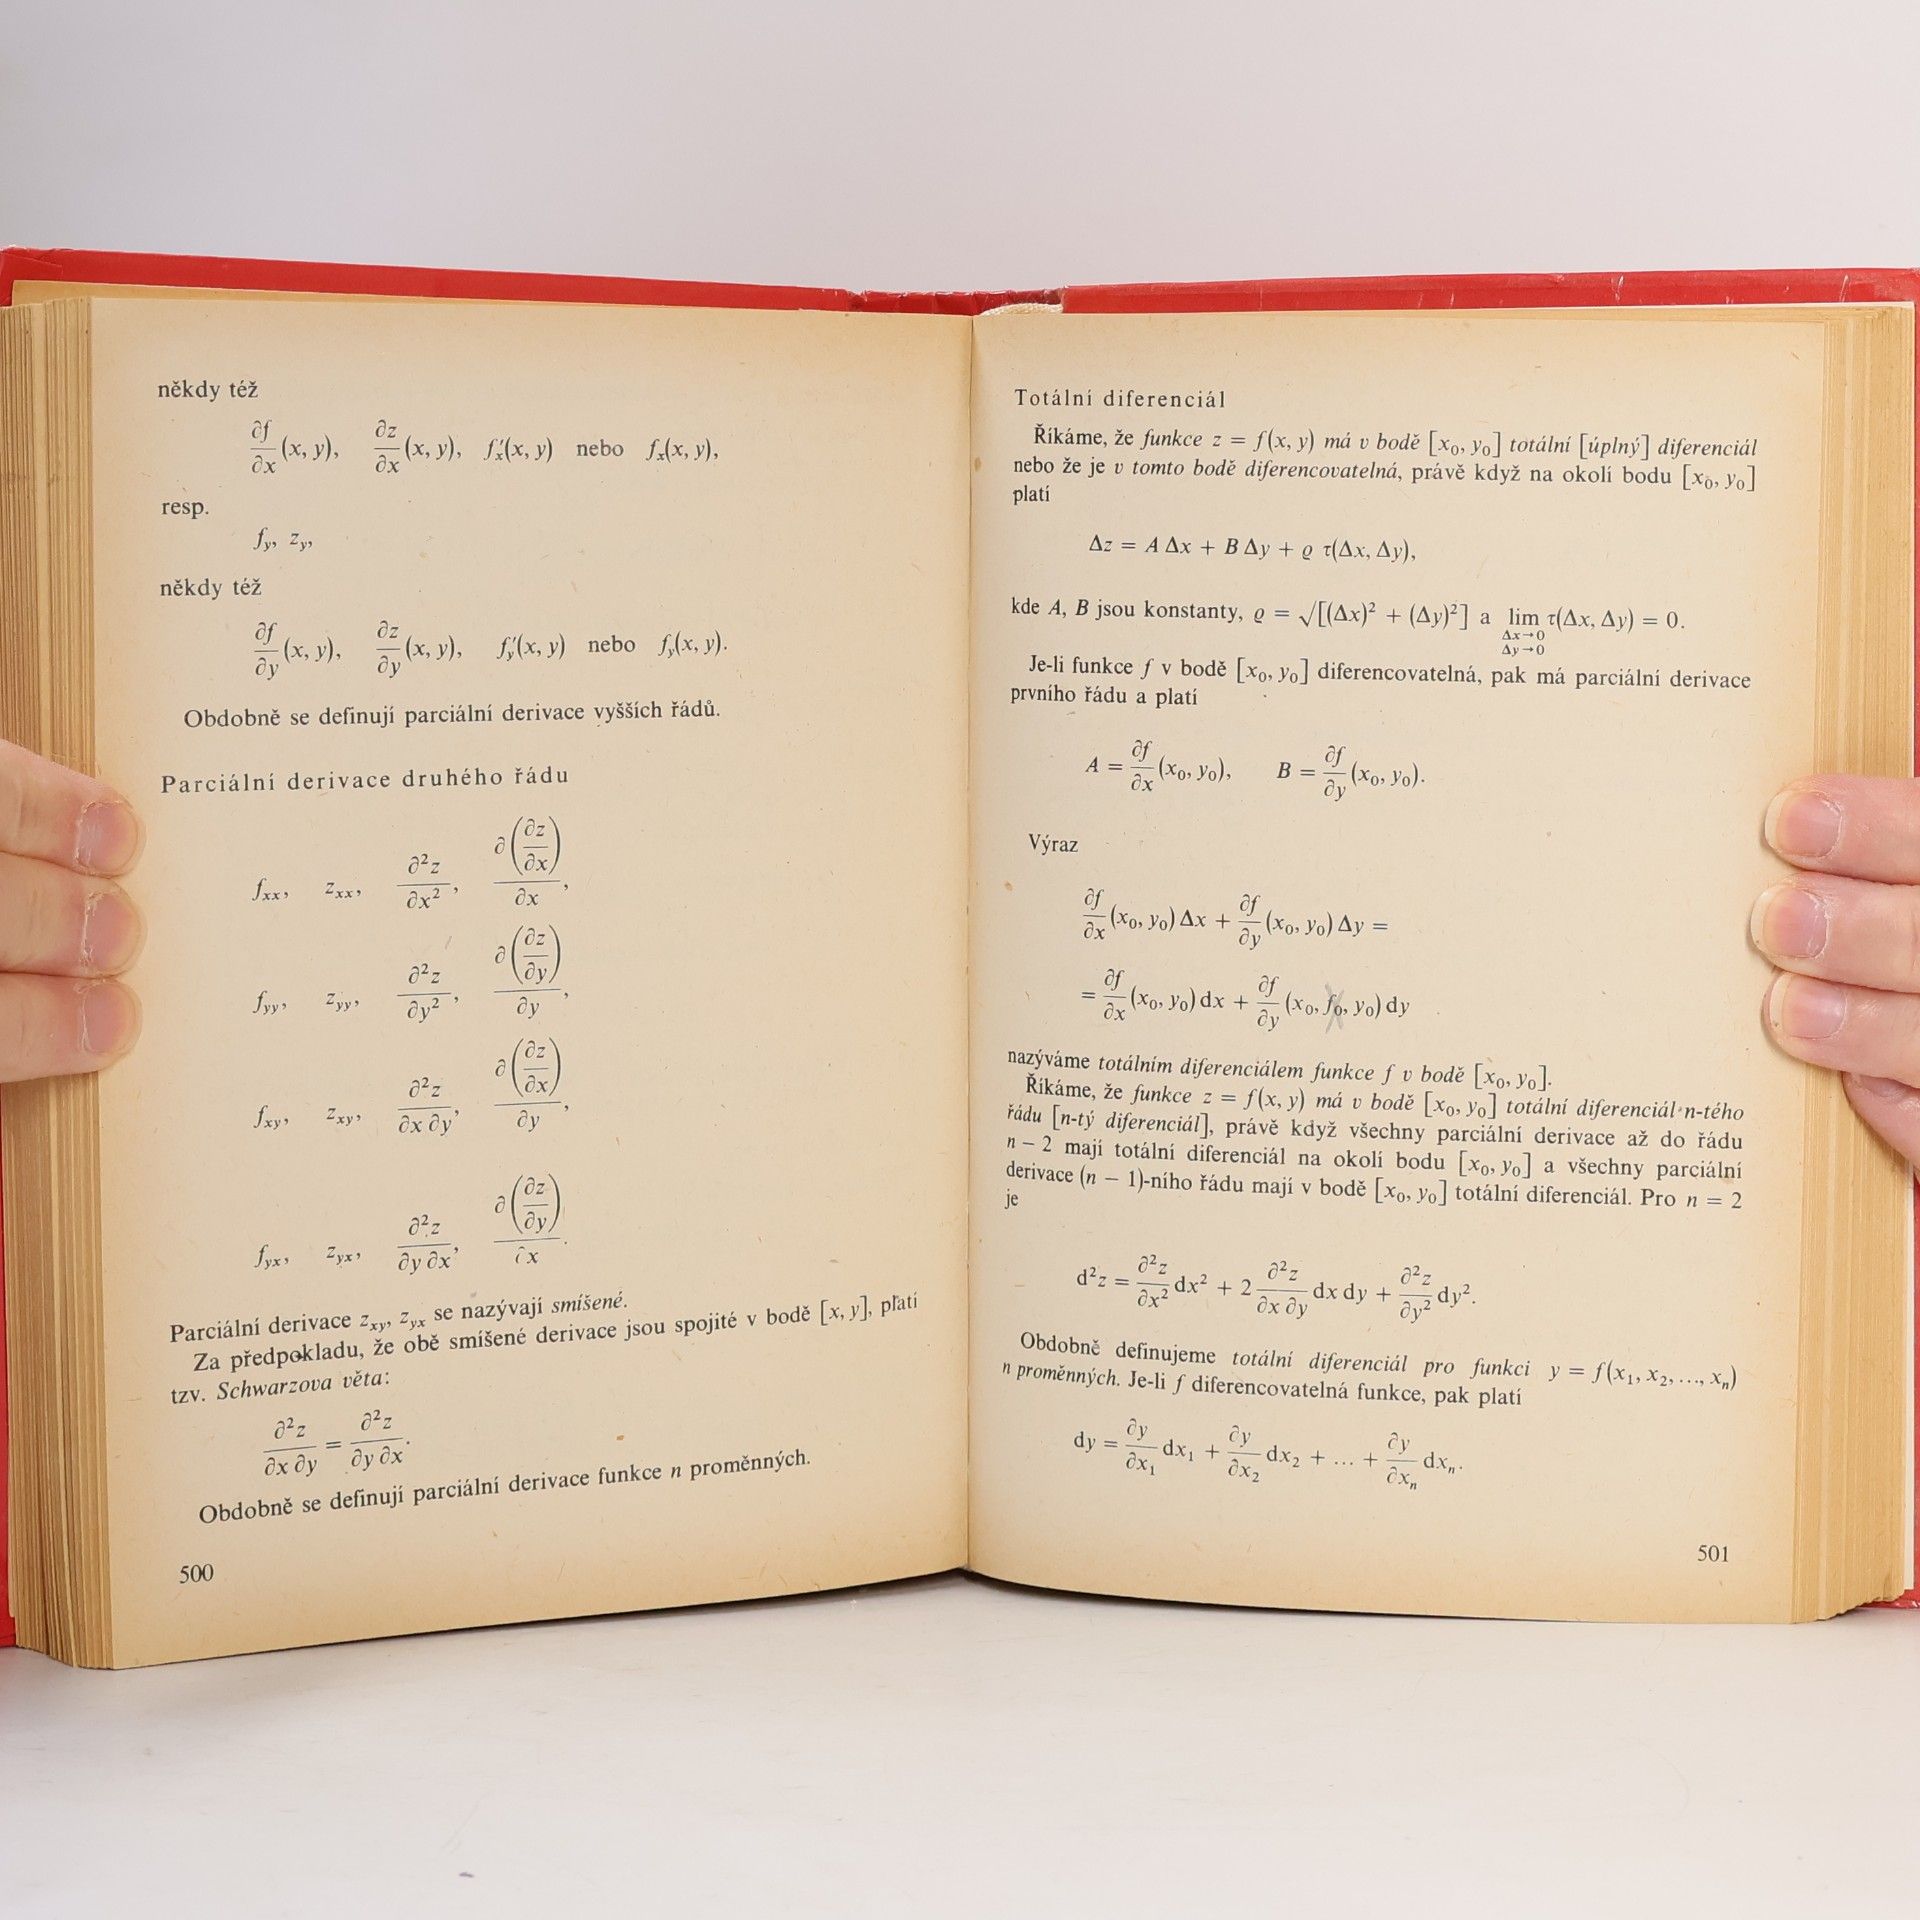 někdy též
∂f/∂x (x, y), ∂z/∂x (x, y), f′ₓ(x, y) nebo fₓ(x, y),
resp.
f_y, z_y,
někdy též
∂f/∂y (x, y), ∂z/∂y (x, y), f′_y(x, y) nebo f_y(x, y).
Obdobně se definují parciální derivace vyšších řádů.
Parciální derivace druhého řádu
f_xx, z_xx, ∂²z/∂x², ∂(∂z/∂x)/∂x,
f_yy, z_yy, ∂²z/∂y², ∂(∂z/∂y)/∂y,
f_xy, z_xy, ∂²z/∂x ∂y, ∂(∂z/∂x)/∂y,
f_yx, z_yx, ∂²z/∂y ∂x, ∂(∂z/∂y)/∂x.
Parciální derivace z_xy, z_yx se nazývají smíšené.
Za předpokladu, že obě smíšené derivace jsou spojité v bodě [x, y], platí
tzv. Schwarzova věta:
∂²z/∂x ∂y = ∂²z/∂y ∂x.
Obdobně se definují parciální derivace funkce n proměnných.
500
Totální diferenciál
Říkáme, že funkce z = f(x, y) má v bodě [x₀, y₀] totální [úplný] diferenciál
nebo že je v tomto bodě diferencovatelná, právě když na okolí bodu [x₀, y₀]
platí
Δz = A Δx + B Δy + ϱ τ(Δx, Δy),
kde A, B jsou konstanty, ϱ = √[(Δx)² + (Δy)²] a lim τ(Δx, Δy) = 0.
Δx→0
Δy→0
Je-li funkce f v bodě [x₀, y₀] diferencovatelná, pak má parciální derivace
prvního řádu a platí
A = ∂f/∂x (x₀, y₀), B = ∂f/∂y (x₀, y₀).
Výraz
∂f/∂x (x₀, y₀) Δx + ∂f/∂y (x₀, y₀) Δy =
= ∂f/∂x (x₀, y₀) dx + ∂f/∂y (x₀, f₀, y₀) dy
nazýváme totálním diferenciálem funkce f v bodě [x₀, y₀].
Říkáme, že funkce z = f(x, y) má v bodě [x₀, y₀] totální diferenciál n-tého
řádu [n-tý diferenciál], právě když všechny parciální derivace až do řádu
n − 2 mají totální diferenciál na okolí bodu [x₀, y₀] a všechny parciální
derivace (n − 1)-ního řádu mají v bodě [x₀, y₀] totální diferenciál. Pro n = 2
je
d²z = ∂²z/∂x² dx² + 2 ∂²z/∂x ∂y dx dy + ∂²z/∂y² dy².
Obdobně definujeme totální diferenciál pro funkci y = f(x₁, x₂, ..., xₙ)
n proměnných. Je-li f diferencovatelná funkce, pak platí
dy = ∂y/∂x₁ dx₁ + ∂y/∂x₂ dx₂ + ... + ∂y/∂xₙ dxₙ.
501